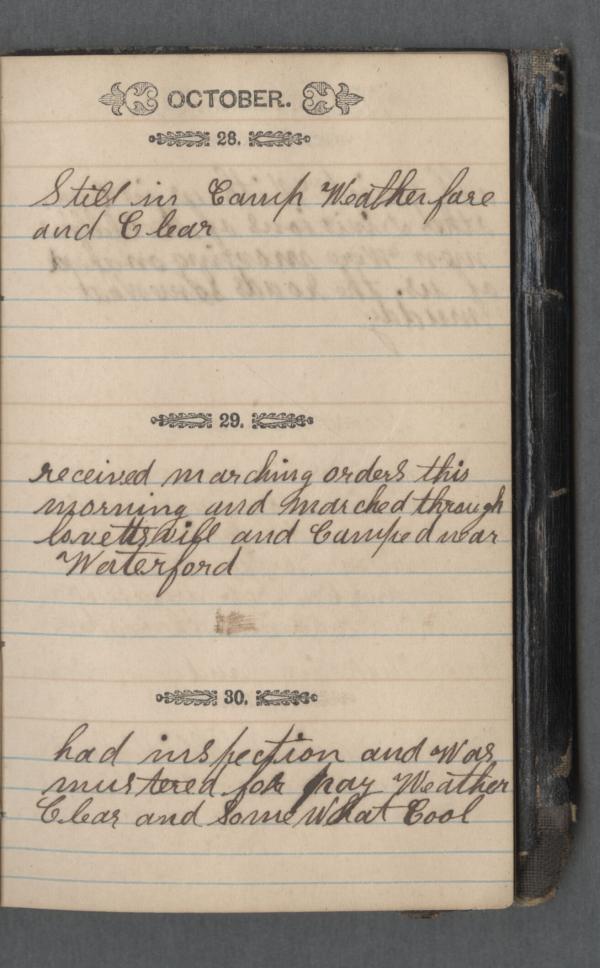 OCTOBER.
28.
Still in Camp Weather fare
and Clear
29.
received marching orders this
morning and marched through
lovettsvill and Camped near
Waterford
30.
had inspection and was
mustered for pay Weather
Clear and Some What Cool